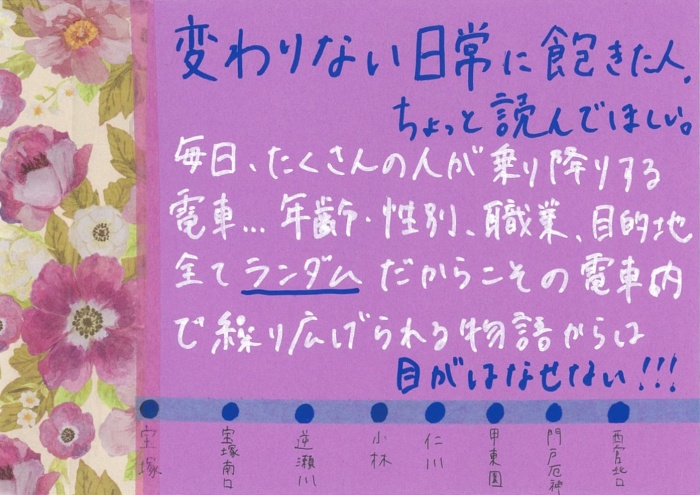 変わりない日常に飽きた人。
ちょっと読んでほしい。
毎日、たくさんの人が乗り降りする
電車…年齢・性別、職業、目的地
全てランダムだからこその電車内
で繰り広げられる物語からは
目がはなせない!!!
宝塚
宝塚南口
逆瀬川
小林
仁川
甲東園
門戸厄神
西宮北口